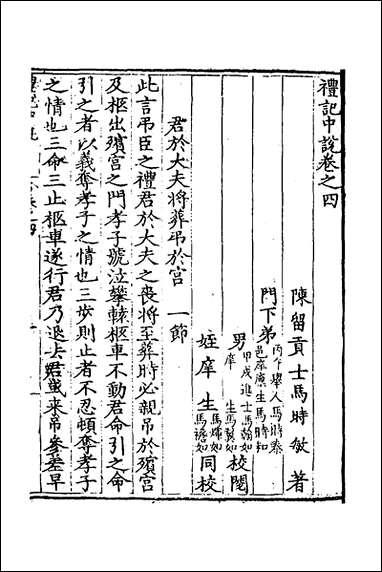 禮記中說卷之四
陳留貢士馬時敏著
門下弟
丙午舉人馬時泰
邑庠廩生馬時知
男
甲戌進士馬翰如
庠生馬翼如
校閱
姪庠生
馬燁如
馬襜如
同校
君於大夫將葬弔於宮一節
此言弔臣之禮君於大夫之喪將至葬時必親弔於殯宮
及柩出殯宮之門孝子號泣攀轅柩車不動君命引之命
引之者以義奪孝子之情也三步則止者不忍頓奪孝子
之情也三命三止柩車遂行君乃退去君或來弔參差早